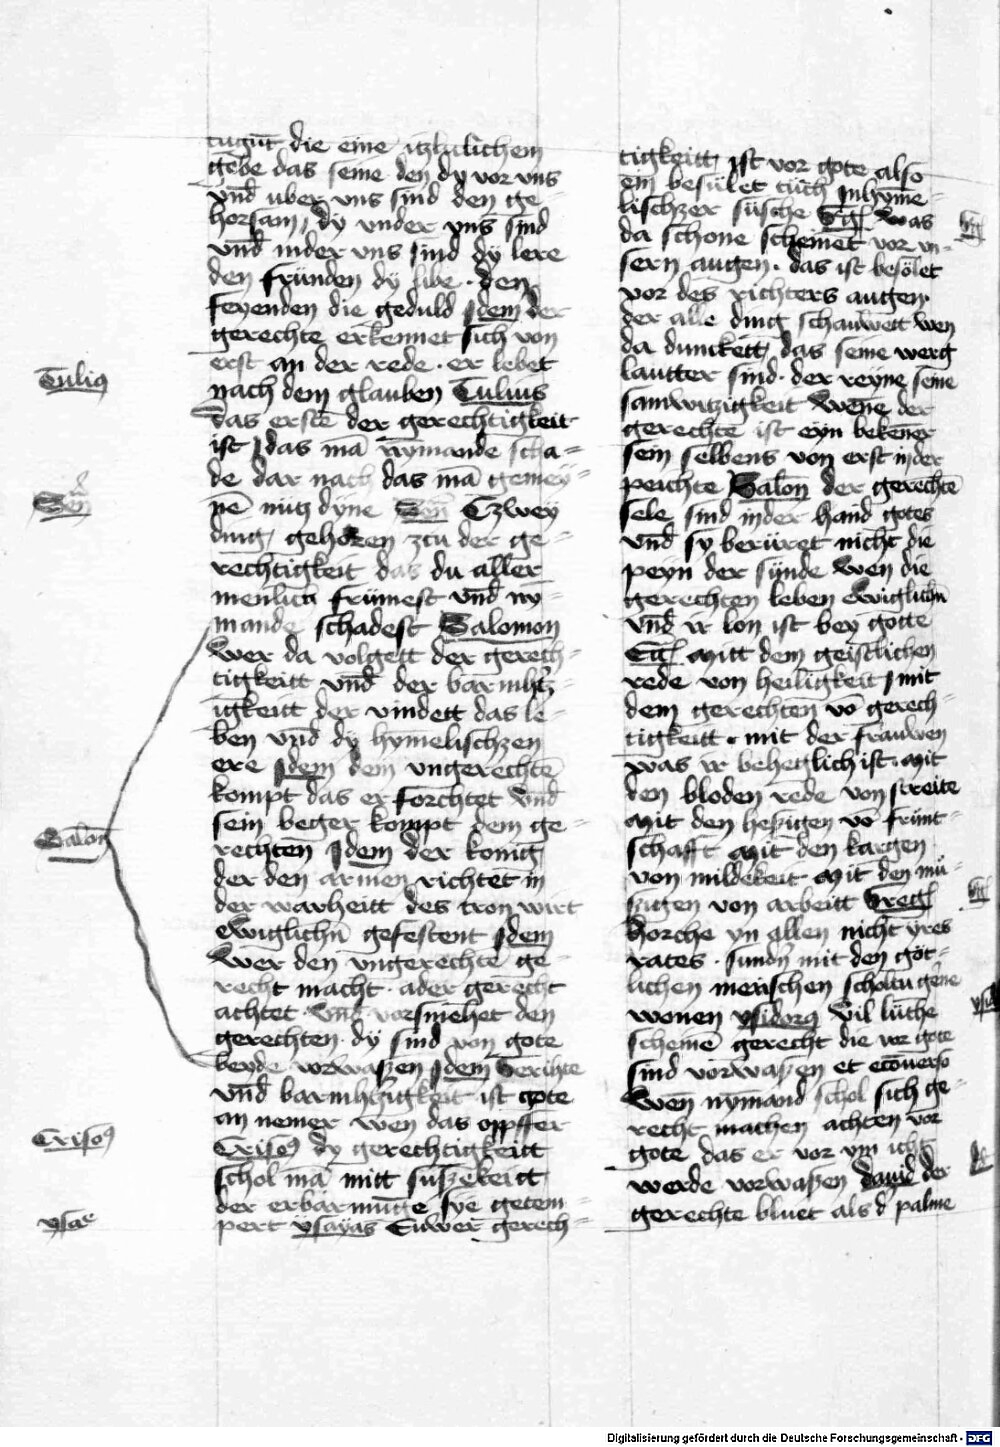 tugūt die eine itzlulichem
gebe das seine den dy vor vns
vnd̄ vber vns sind den ge-
horsam, dy vnder vns sind
vnd̄ nider vns sind dy lere
den frúnden dy libe · den
feyenden die geduld Jdem der
gerechte erkennet sich von
erst an der rede · er lebet
nach dem glauben Tulius
das erste der gerechtigkeit
ist das mā nymande scha=
de dar nach das mā gemey-
nē nutz dyne Czwey
ding, gehoren zcu der ge-
rechtigkeit das du aller
menlich frúmest vnd̄ ny-
mande schadest Salomon
Wer da volgett der gerech=
tigkeitt vnd̄ der barmhtz=
igkeitt der vindett das le-
ben vnd dy hymelischzen
ere Jdem dem vngerechtē
kompt das er forchtet vnd̄
sein beger kompt dem ge-
rechten Jdem der konig
der den armen richtet in
der warheitt des tron wirt
ewiglichn̄ gefestent Jdem
Wer den vngerechtē ge-
recht macht · ader gerecht
achtet · vnd vorsmehet den
gerechten · dy sind von gote
beyde vorwaszen Jdem Gerichte
vnd̄ barmhertzigkeit ist gote
an nemer wen das oppffer
Crisos dy gerechtigkeitt
schol mā mitt suszekeitt
der erbarmunge sye getem=
pert ysayas Euwer gerech=
Tulius
Salon̄
Crisos
ysae
tigkeitt, ist vor gote also
ein besúlet tuch Jnhymē-
lischzer súsche Gg Was
da schone scheinet vor vn-
sern augen · das ist besólet
vor des richters augen·
der alle ding schauwett wen
da dunckett, das seine werg
lautter sind · der reyne seine
samwitzigkeit Wēne der
gerechte ist eyn bekener
sein selbens von erst inder
peichte Salon̄ der gerechtē
sele sind inder hand gotes
vnd̄ sy berúret nicht die
peyn der súnde Wen die
gerechten leben ewiglichn̄
vnd̄ ir lon ist bey gotte
Mitt dem geistlichen
rede von heiligkeit mit
dem gerechten vō gerech-
tigkeitt · mit der frauwen
was ir beheglich ist · Mit
den bloden rede von streite
Mit den heszigen vō frúnt-
schafft Mit den kargen
von mildekeit · Mit den mú-
szigen von arbeitt Greg
Horche yn allen nicht yres
rates · sundn̄ mit den göt-
lichen menschen scholtu gēne
wonen ysidorus Vil lúthe
scheinē gerecht die vor gote
sind vorwaszen et ecōuerso
Wen nymand schol sich ge-
recht machen achten vor
gote das er vor ym icht
werde vorwaszen dauid der
gerechte bluet als d' palme